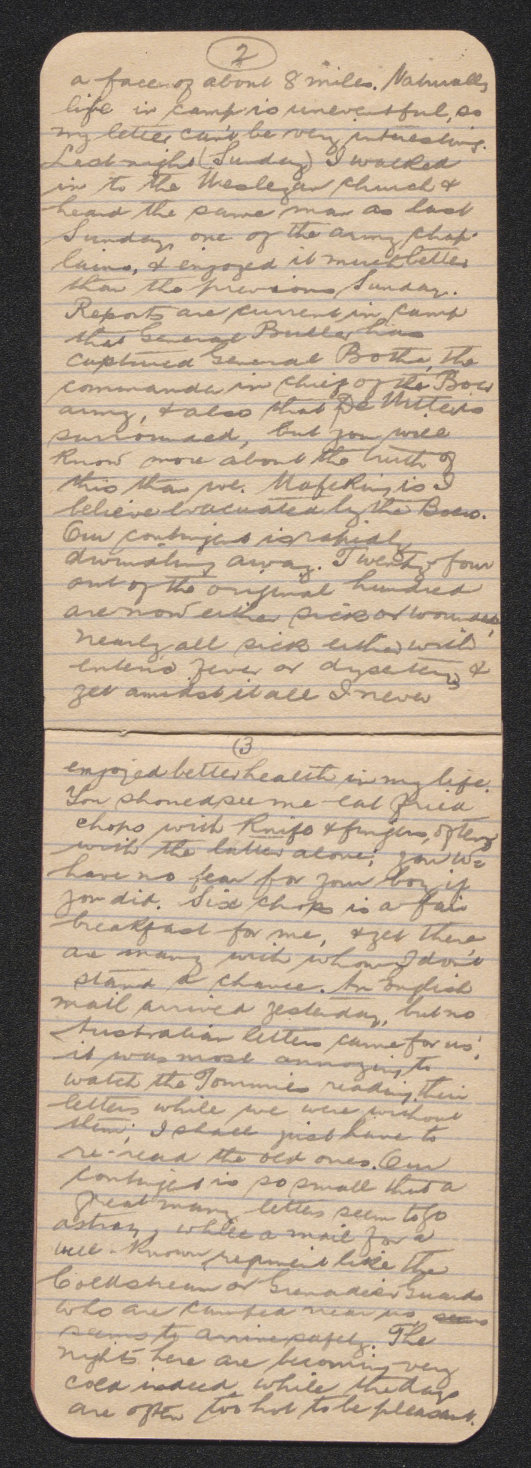 2
a face of about 8 miles. Naturally
life in camp is uneventful, so
my letter can't be very interesting.
Last night (Sunday) I walked
in to the Wesleyan church &
heard the same man as last
Sunday, one of the army chap-
lains, & enjoyed it much better
than the previous Sunday.
Reports are current in camp
that General Buller has
captured General Botha, the
commander in chief of the Boer
army, & also that De Wet is
surrounded, but you will
know more about the truth of
this than we. Mafeking is I
believe evacuated by the Boers.
Our contingent is rapidly
dwindling away. Twenty-four
out of the original hundred
are now either sick or wounded,
nearly all sick either with
enteric fever or dysentery &
yet amidst it all I never
(3
enjoyed better health in my life.
You should see me eat fried
chops with knife & fingers, often
with the latter alone; you wd
have no fear for your boy if
you did. Six chops is a fair
breakfast for me, & yet there
are many with whom I don't
stand a chance. An English
mail arrived yesterday, but no
Australian letters came for us;
it was most annoying to
watch the Tommies reading their
letters while we were without
them; I shall just have to
re-read the old ones. Our
contingent is so small that a
great many letters seem to go
astray, while a mail for a
well-known regiment like the
Coldstream or Grenadier Guards
who are camped near us,
seems to arrive safely. The
nights here are becoming very
cold indeed, while the days
are often too hot to be pleasant.